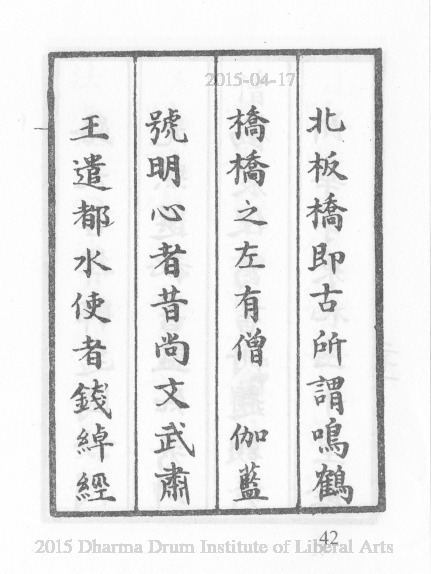 2015-04-17
北板橋即古所謂鳴鶴
橋橋之左有僧伽藍
號明心者昔尚文武肅
王遣都水使者錢綽經
42
2015 Dharma Drum Institute of Liberal Arts